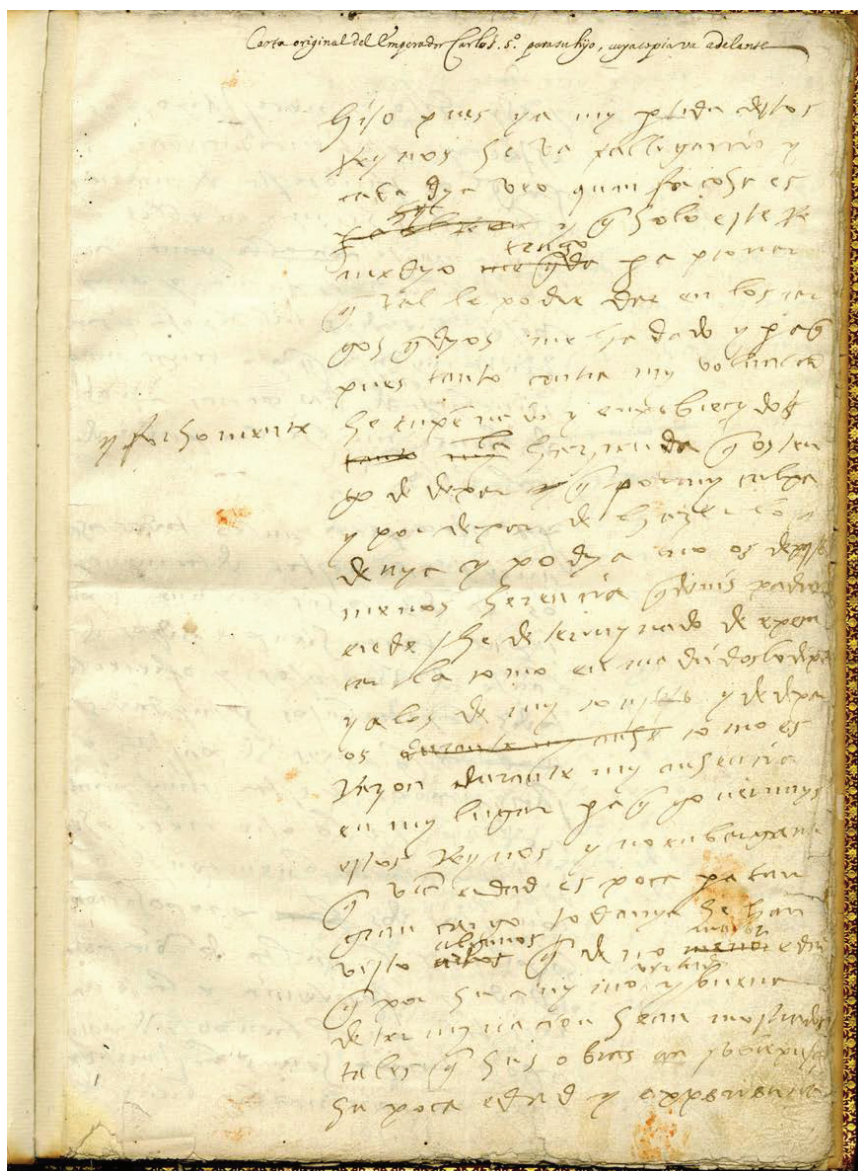 Carta original del Emperador Carlos. 5º. para su hijo, cuya copia va adelante
hijo pues ya my ptida destos
Reynos se va allegando y
cada dya veo quan forçosa es
y q solo este Re
medyo tengo pa provar
q tal le podre dar en los car
gos q dyos me ha dado y paq
pues tanto contra my voluntad
y forçosamente
he enpeñado y enpobrecydo
la hazyenda q os ten
go de dexar q por my culpa
y por dexar de hazer lo q
devya y podya no os dexase
menos herencia q de mis padres
erede he determynado de
como
y a los de my y de dexa
os como es
Razon durante my ausencia
en my lugar paq governays
estos Reynos y no enbargante
q vra endad es poca pa tan
gran cargo todavya se han
visto algunos q de no mayor edad
q por su anymo virtud y buena
determynacion sean mostrado
tales q sus obras an sobrepujado
su poca edad y